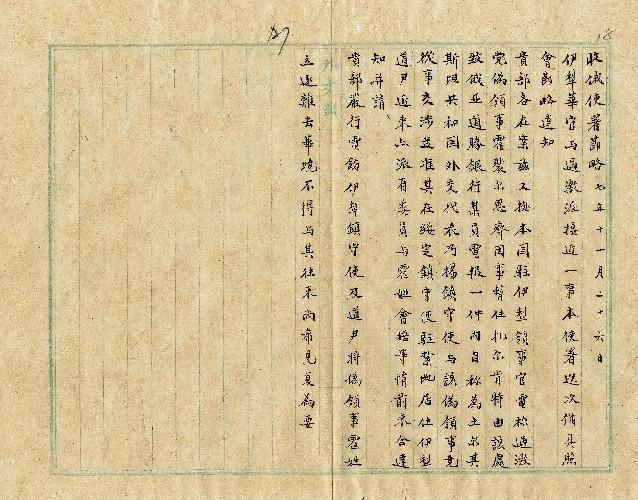 18
收俄使署節略 七年十一月二十六日
伊犁華官与過激派接近一事本使署迭次備具照
會節略達知
貴部各在案茲又接本国駐伊犁領事官電稱過激
党偽領事霍 因事暫住札尔肯特由該處
致俄亞道勝銀行某員電報一件內自稱為土尔其
斯坦共和国外交代表乃楊鎮守使与該偽領事竟
從事交涉並准其在綏定鎮守使駐紮此店住伊犁
道尹近來亦派有委員与霍姓會晤等情前來合達
知并請
貴部嚴行電飭伊犁鎮守使及道尹將偽領事霍姓
立逐離去華境不得与其往來尚希見复為要
外交部